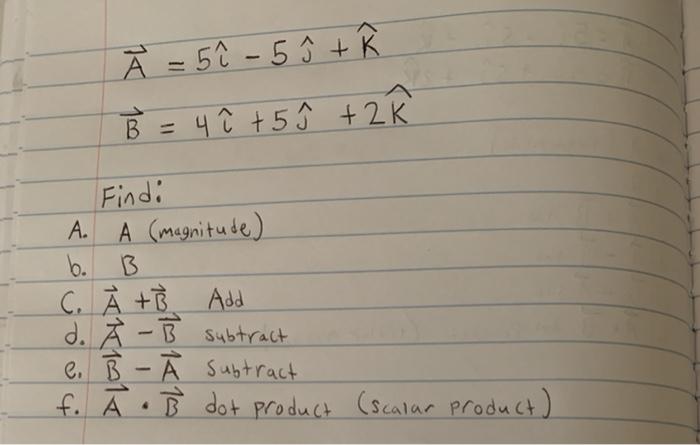 A⃗ = 5î - 5ĵ + K̂
B⃗ = 4î + 5ĵ + 2K̂
Find:
A. A (magnitude)
b. B
C. A⃗ + B⃗ Add
d. A⃗ - B⃗ subtract
e. B⃗ - A⃗ Subtract
f. A⃗ · B⃗ dot product (scalar product)